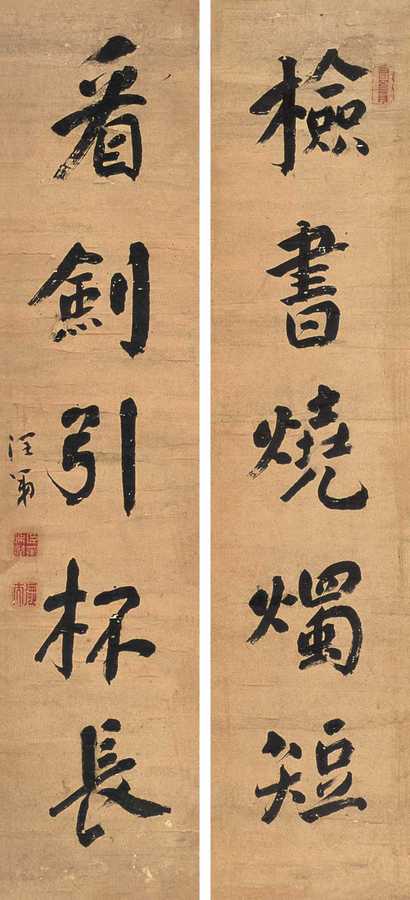 檢書燒燭短
看劍引杯長
汪